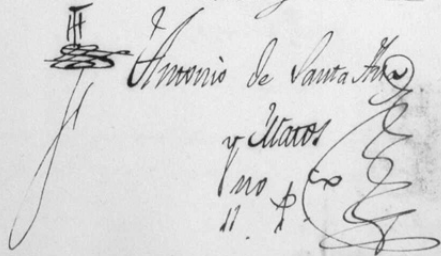 Antonio de Santa Ana
y Matos
no